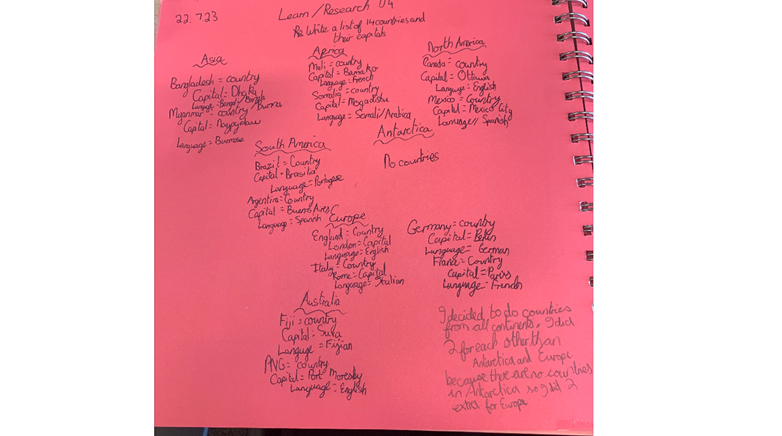 22.7.23
Learn/Research U4
Write a list of 14 countries and
their capitals
Asia
Bangladesh = country
Capital = Dhaka
Language = Bengali/Bangla
Myanmar = country/Burma
Capital =
Language = Burmese
Africa
Mali = country
Capital = Bamako
Language = French
Somalia = country
Capital = Mogadishu
Language = Somali/Arabica
North America
Canada = country
Capital = Ottawa
Language = English
Mexico = Country
Capital = Mexico City
Language = Spanish
Antarctica
No countries
South America
Brazil = Country
Capital = Brasilia
Language = Portogese
Argentina = Country
Capital = Buenos Aires
Language = Spanish
Europe
England = Country
London = Capital
Language = English
Italy = Country
Rome = Capital
Language = Italian
Germany = country
Capital =
Language = German
= Country
Capital = Paris
Language = French
Australia
Fiji = country
Capital = Suva
Language = Fijian
PNG = country
Capital = Port Moresby
Language = English
I decided to do countries
from all continents. I did
2 for each other than
Antarctica and Europe
because there are no countries
in Antarctica so I did 2
extra for Europe